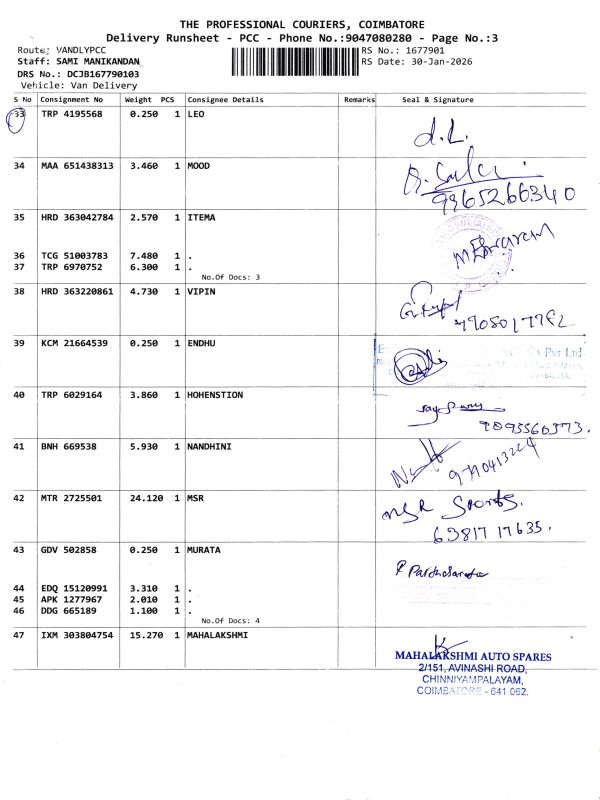 THE PROFESSIONAL COURIERS, COIMBATORE
Delivery Runsheet - PCC - Phone No.:9047080280 - Page No.:3
Route: VANDLYPCC
RS No.: 1677901
Staff: SAMI MANIKANDAN
RS Date: 30-Jan-2026
DRS No.: DCJB167790103
Vehicle: Van Delivery
S No Consignment No Weight PCS Consignee Details Remarks Seal & Signature
33 TRP 4195568 0.250 1 LEO
34 MAA 651438313 3.460 1 MOOD
9965266340
35 HRD 363042784 2.570 1 ITEMA
36 TCG 51003783 7.480 1 .
37 TRP 6970752 6.300 1 .
No.Of Docs: 3
38 HRD 363220861 4.730 1 VIPIN
39 KCM 21664539 0.250 1 ENDHU
Pvr Ltd
40 TRP 6029164 3.860 1 HOHENSTION
9095566373.
41 BNH 669538 5.930 1 NANDHINI
42 MTR 2725501 24.120 1 MSR
MSR Sports.
63817 17635.
43 GDV 502858 0.250 1 MURATA
44 EDQ 15120991 3.310 1 .
45 APK 1277967 2.010 1 .
46 DDG 665189 1.100 1 .
No.Of Docs: 4
47 IXM 303804754 15.270 1 MAHALAKSHMI
MAHALAKSHMI AUTO SPARES
2/151, AVINASHI ROAD,
CHINNIYAMPALAYAM,
COIMBATORE - 641 062.